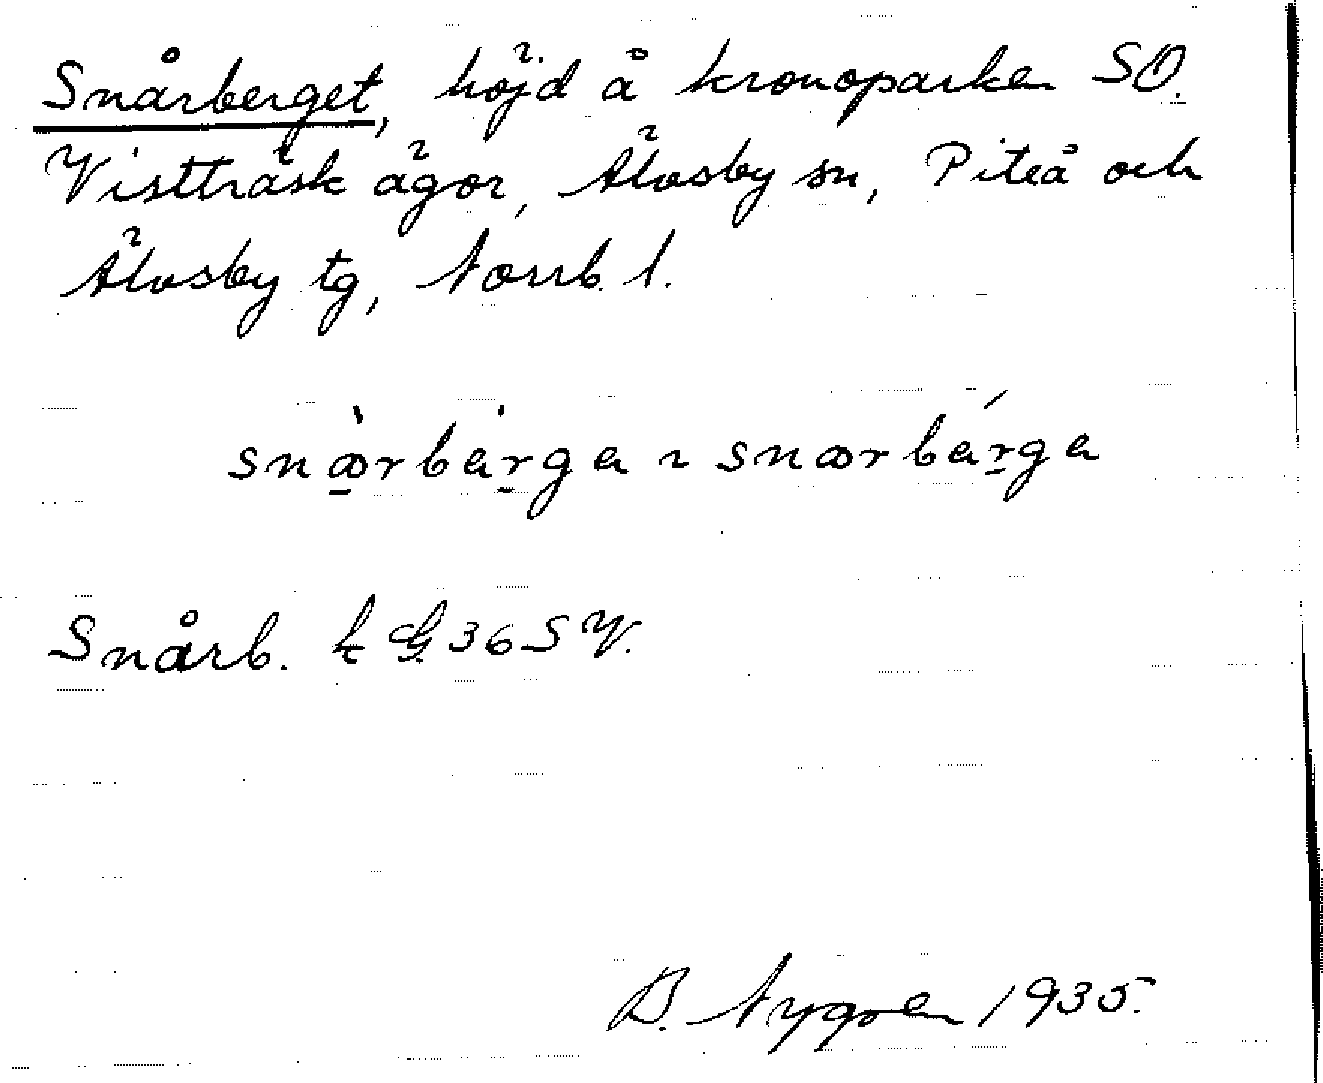 Snårberget, höjd å kronoparken SO.
Vistträsk ägor, Älvsby sn, Piteå och
Älvsby tg, Norrb. l.
snærbärga ~ snærbärga
Snårb. k G 36 SV.
B. Nygren 1935.